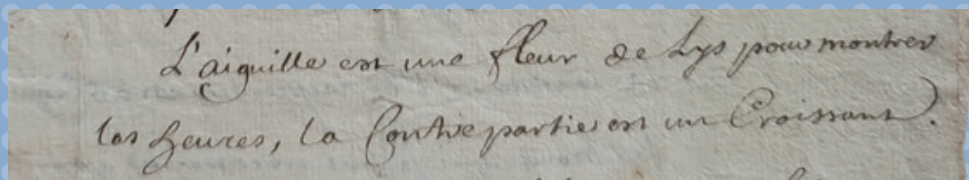 L'aiguille est une fleur de Lys pour montrer
les heures, la Contrepartie est un Croissant.